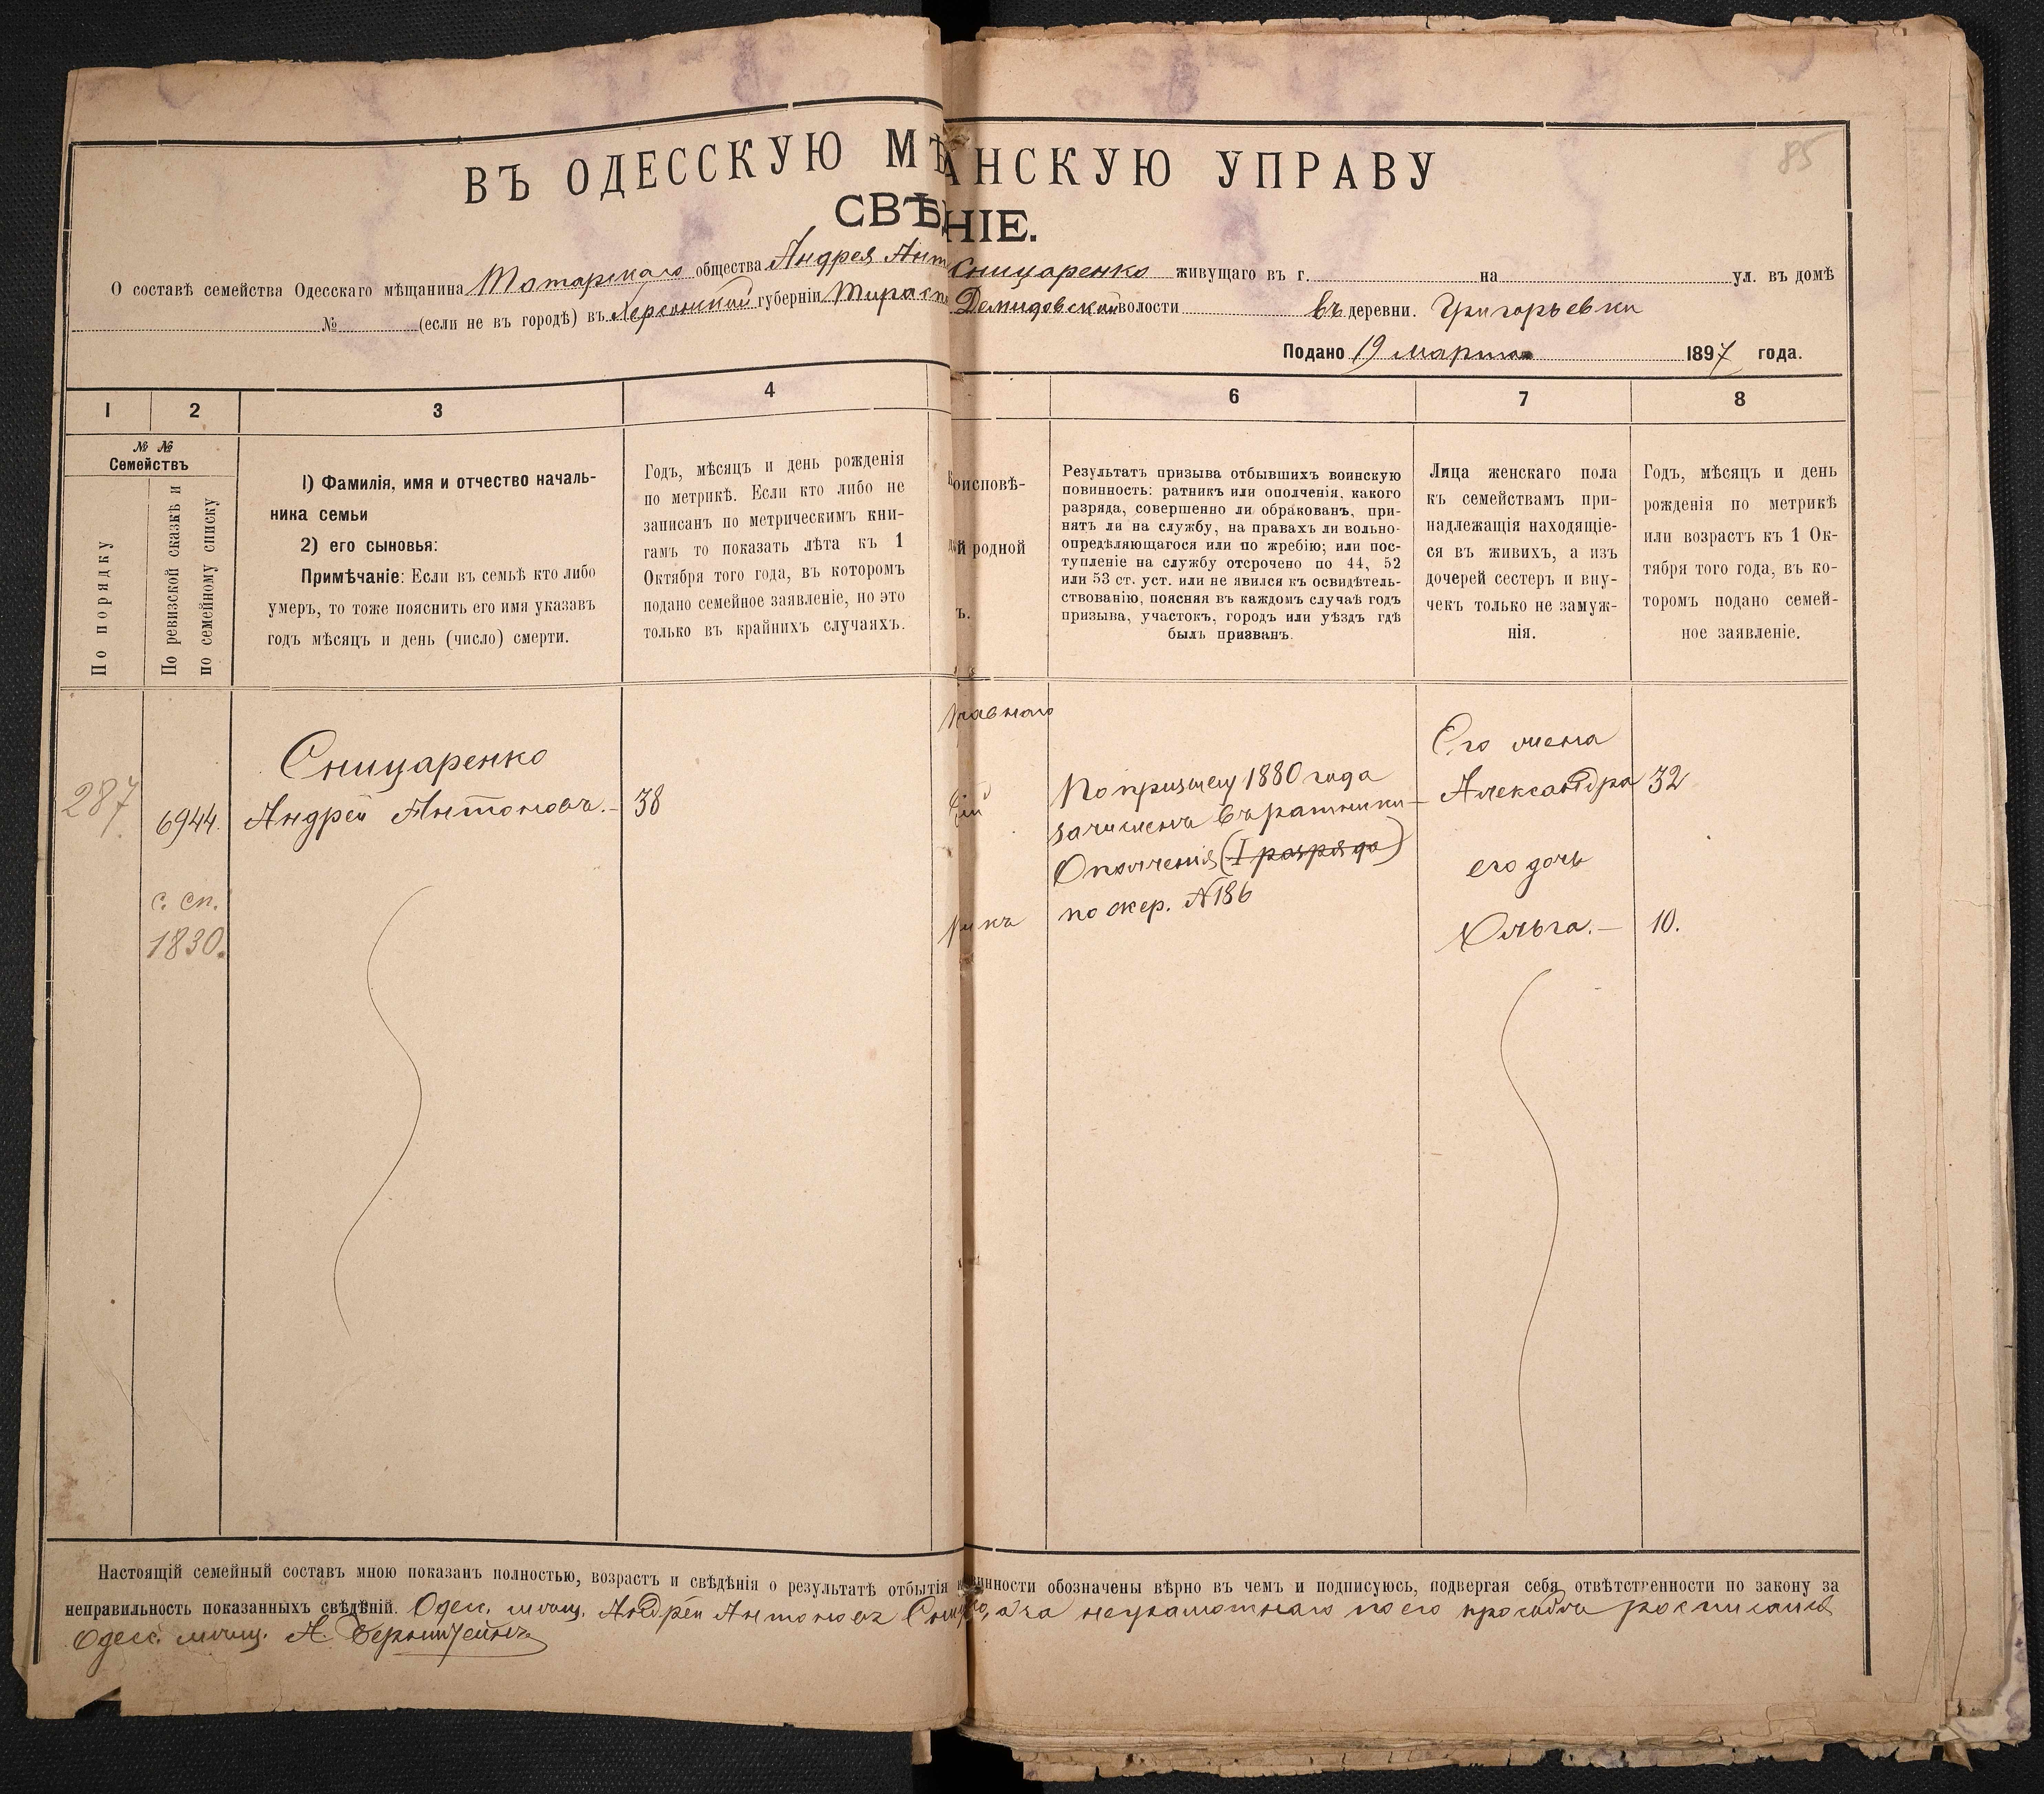 85
ВЪ ОДЕССКУЮ МѢ АНСКУЮ УПРАВУ
СВѢ НІЕ.
О составѣ семейства Одесскаго мѣщанина Татарскаго общества Андрея Ант Сницаренко живущаго въ г. на ул. въ домѣ
№ (если не въ городѣ) въ Херсонской губерніи Тирасп Демидовской волости въ деревни. Григорьевки
Подано 19 марта 1897 года.
1 2 3 4 6 7 8
№ №
Семействъ
По порядку
По ревизской сказкѣ и
по семейному списку
1) Фамилія, имя и отчество началь-
ника семьи
2) его сыновья:
Примѣчаніе: Если въ семьѣ кто либо
умеръ, то тоже пояснить его имя указавъ
годъ мѣсяцъ и день (число) смерти.
Годъ, мѣсяцъ и день рожденія
по метрикѣ. Если кто либо не
записанъ по метрическимъ кни-
гамъ то показать лѣта къ 1
Октября того года, въ которомъ
подано семейное заявленіе, но это
только въ крайнихъ случаяхъ.
оисповѣ-
й родной
ъ.
Результатъ призыва отбывшихъ воинскую
повинность: ратникъ или ополченія, какого
разряда, совершенно ли обракованъ, при-
нятъ ли на службу, на правахъ ли вольно-
опредѣляющагося или по жребію; или пос-
тупленіе на службу отсрочено по 44, 52
или 53 ст. уст. или не явился къ освидѣтель-
ствованію, поясняя въ каждомъ случаѣ годъ
призыва, участокъ, городъ или уѣздъ гдѣ
былъ призванъ.
Лица женскаго пола
къ семействамъ при-
надлежащія находящіе-
ся въ живихъ, а изъ
дочерей сестеръ и вну-
чекъ только не замуж-
нія.
Годъ, мѣсяцъ и день
рожденія по метрикѣ
или возрастъ къ 1 Ок-
тября того года, въ ко-
торомъ подано семей-
ное заявленіе.
287
6944.
с. сп.
1830.
Сницаренко
Андрей Антоновъ.–
38
авнаго
По призыву 1880 года
зачисленъ въ ратники–
Ополченія (I разряда)
по жер. №186
Его жена
Александра 32
его дочь
Ольга.– 10.
Настоящій семейный составъ мною показанъ полностью, возрастъ и свѣдѣнія о результатѣ отбытія инности обозначены вѣрно въ чемъ и подписуюсь, подвергая себя отвѣтственности по закону за
неправильность показанныхъ свѣдѣній. Одес. мѣщ. Андрей Антоновъ Сниц о, а за неграмотнаго по его просьбѣ росписался
Одесс. мѣщ. А. Бернштейнъ